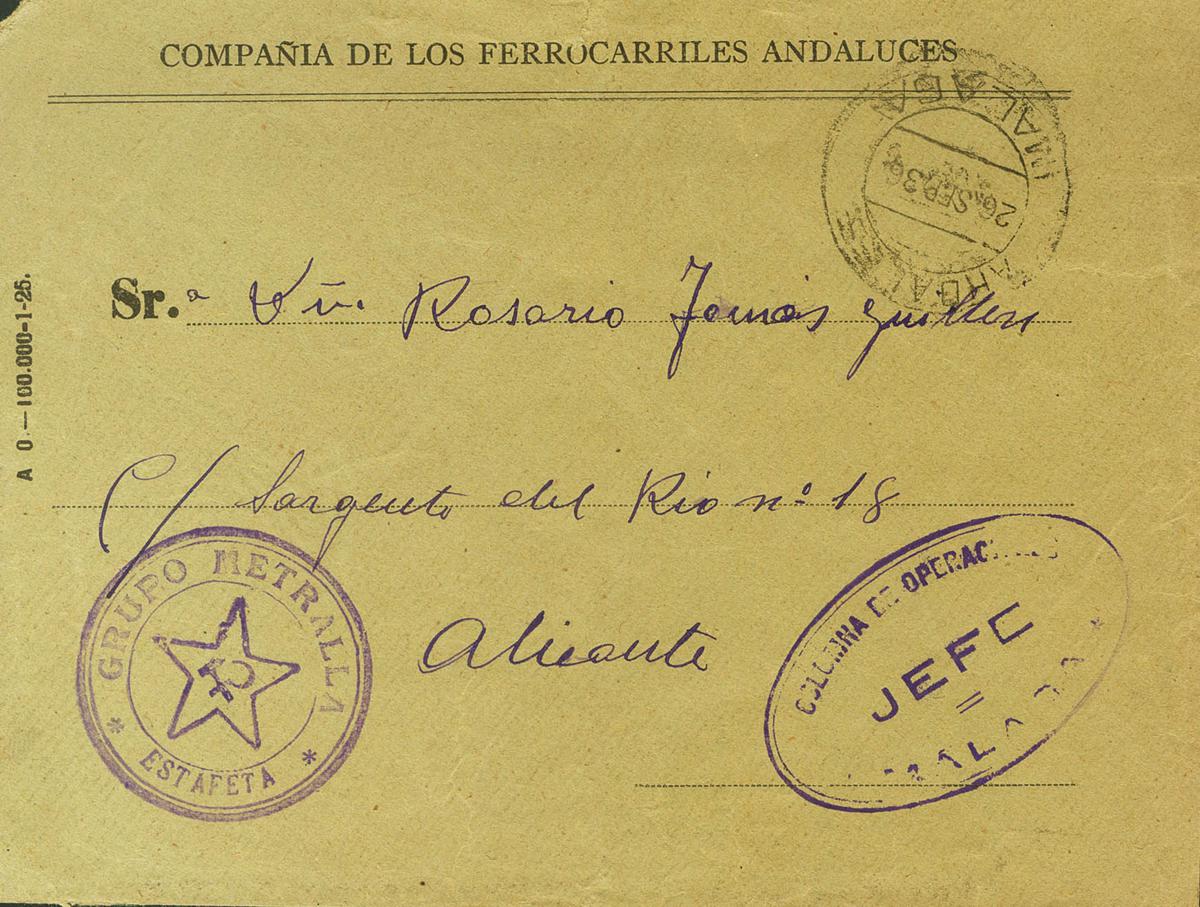 COMPAÑIA DE LOS FERROCARRILES ANDALUCES
MALAGA
26 SEP. 36
ARDALES
A 0.—100.000-1-25.
Sr.ª Dña. Rosario Tomás Guillen
C/ Sargento del Rio nº 18
Alicante
GRUPO METRALLA
* ESTAFETA *
COLUMNA DE OPERAC
JEFE
MALAGA *